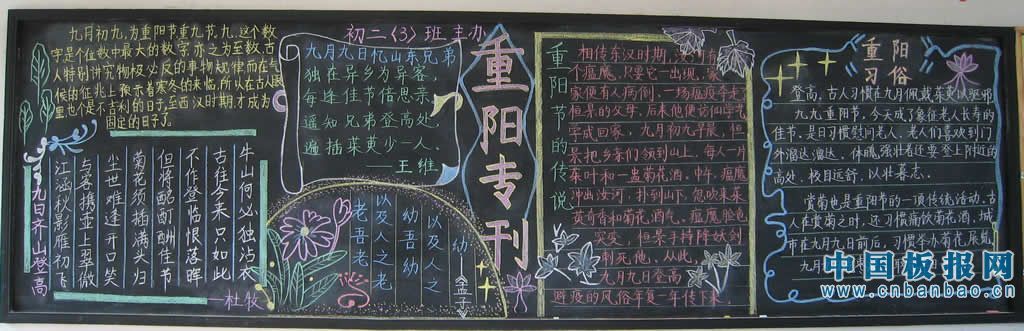 初二〈3〉班主办
重阳专刊
九月初九,为重阳节重九节,九,这个数
字是个位数中最大的数字,亦之为至数,古
人特别讲究物极必反的事物规律,而在气
候的征兆上预示着寒冬的来临,所以在古人眼
里也个是不吉利的日子,至西汉时期,才成为
固定的日子了。
九日齐山登高
江涵秋影雁初飞
与客携壶上翠微
尘世难逢开口笑
菊花须插满头归
但将酩酊酬佳节
不作登临恨落晖
古往今来只如此
牛山何必独沾衣
—杜牧
九月九日忆山东兄弟
独在异乡为异客,
每逢佳节倍思亲。
遥知兄弟登高处,
遍插茱萸少一人。
——王维
老吾老
以及人之老
幼吾幼
以及人之
幼
孟子
重阳节的传说
相传东汉时期,汝河有
个瘟魔,只要它一出现,家
家便有人病倒,一场瘟疫夺走
恒景的父母,后来他便访仙学艺
学成回家,九月初九早晨,恒
景把乡亲们领到山上,每人一片
茶叶和一盅菊花酒,中午,瘟魔
冲出汝河,扑到山下,忽吹来茱
萸奇香和菊花酒气。瘟魔脸色
突变,恒景手持降妖剑
刺死他、从此,
九月九日登高
避疫的风俗年复一年传下来。
重阳习俗
登高,古人习惯在九月佩戴茱萸以驱邪
九九重阳节,今天成了象征老人长寿的
佳节,是日习惯慰问老人,老人们喜欢到门
外溜达溜达,体魄强壮者还要登上附近的
高处,极目远舒,以壮暮志。
赏菊也是重阳节的一项传统活动,古
在赏菊之时,还习惯痛饮菊花酒,城
市在九月九日前后,习惯举办菊花展览
九月
中国板报网
www.cnbanbao.cn